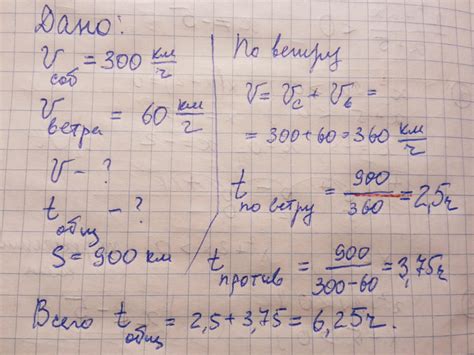 Дано:
V соб = 300 км/ч
V ветра = 60 км/ч
V - ?
t общ - ?
S = 900 км
По ветру
V = Vс + Vв =
= 300 + 60 = 360 км/ч
t по ветру = 900/360 = 2,5ч
t против = 900/300-60 = 3,75ч
Всего t общ = 2,5 + 3,75 = 6,25ч.